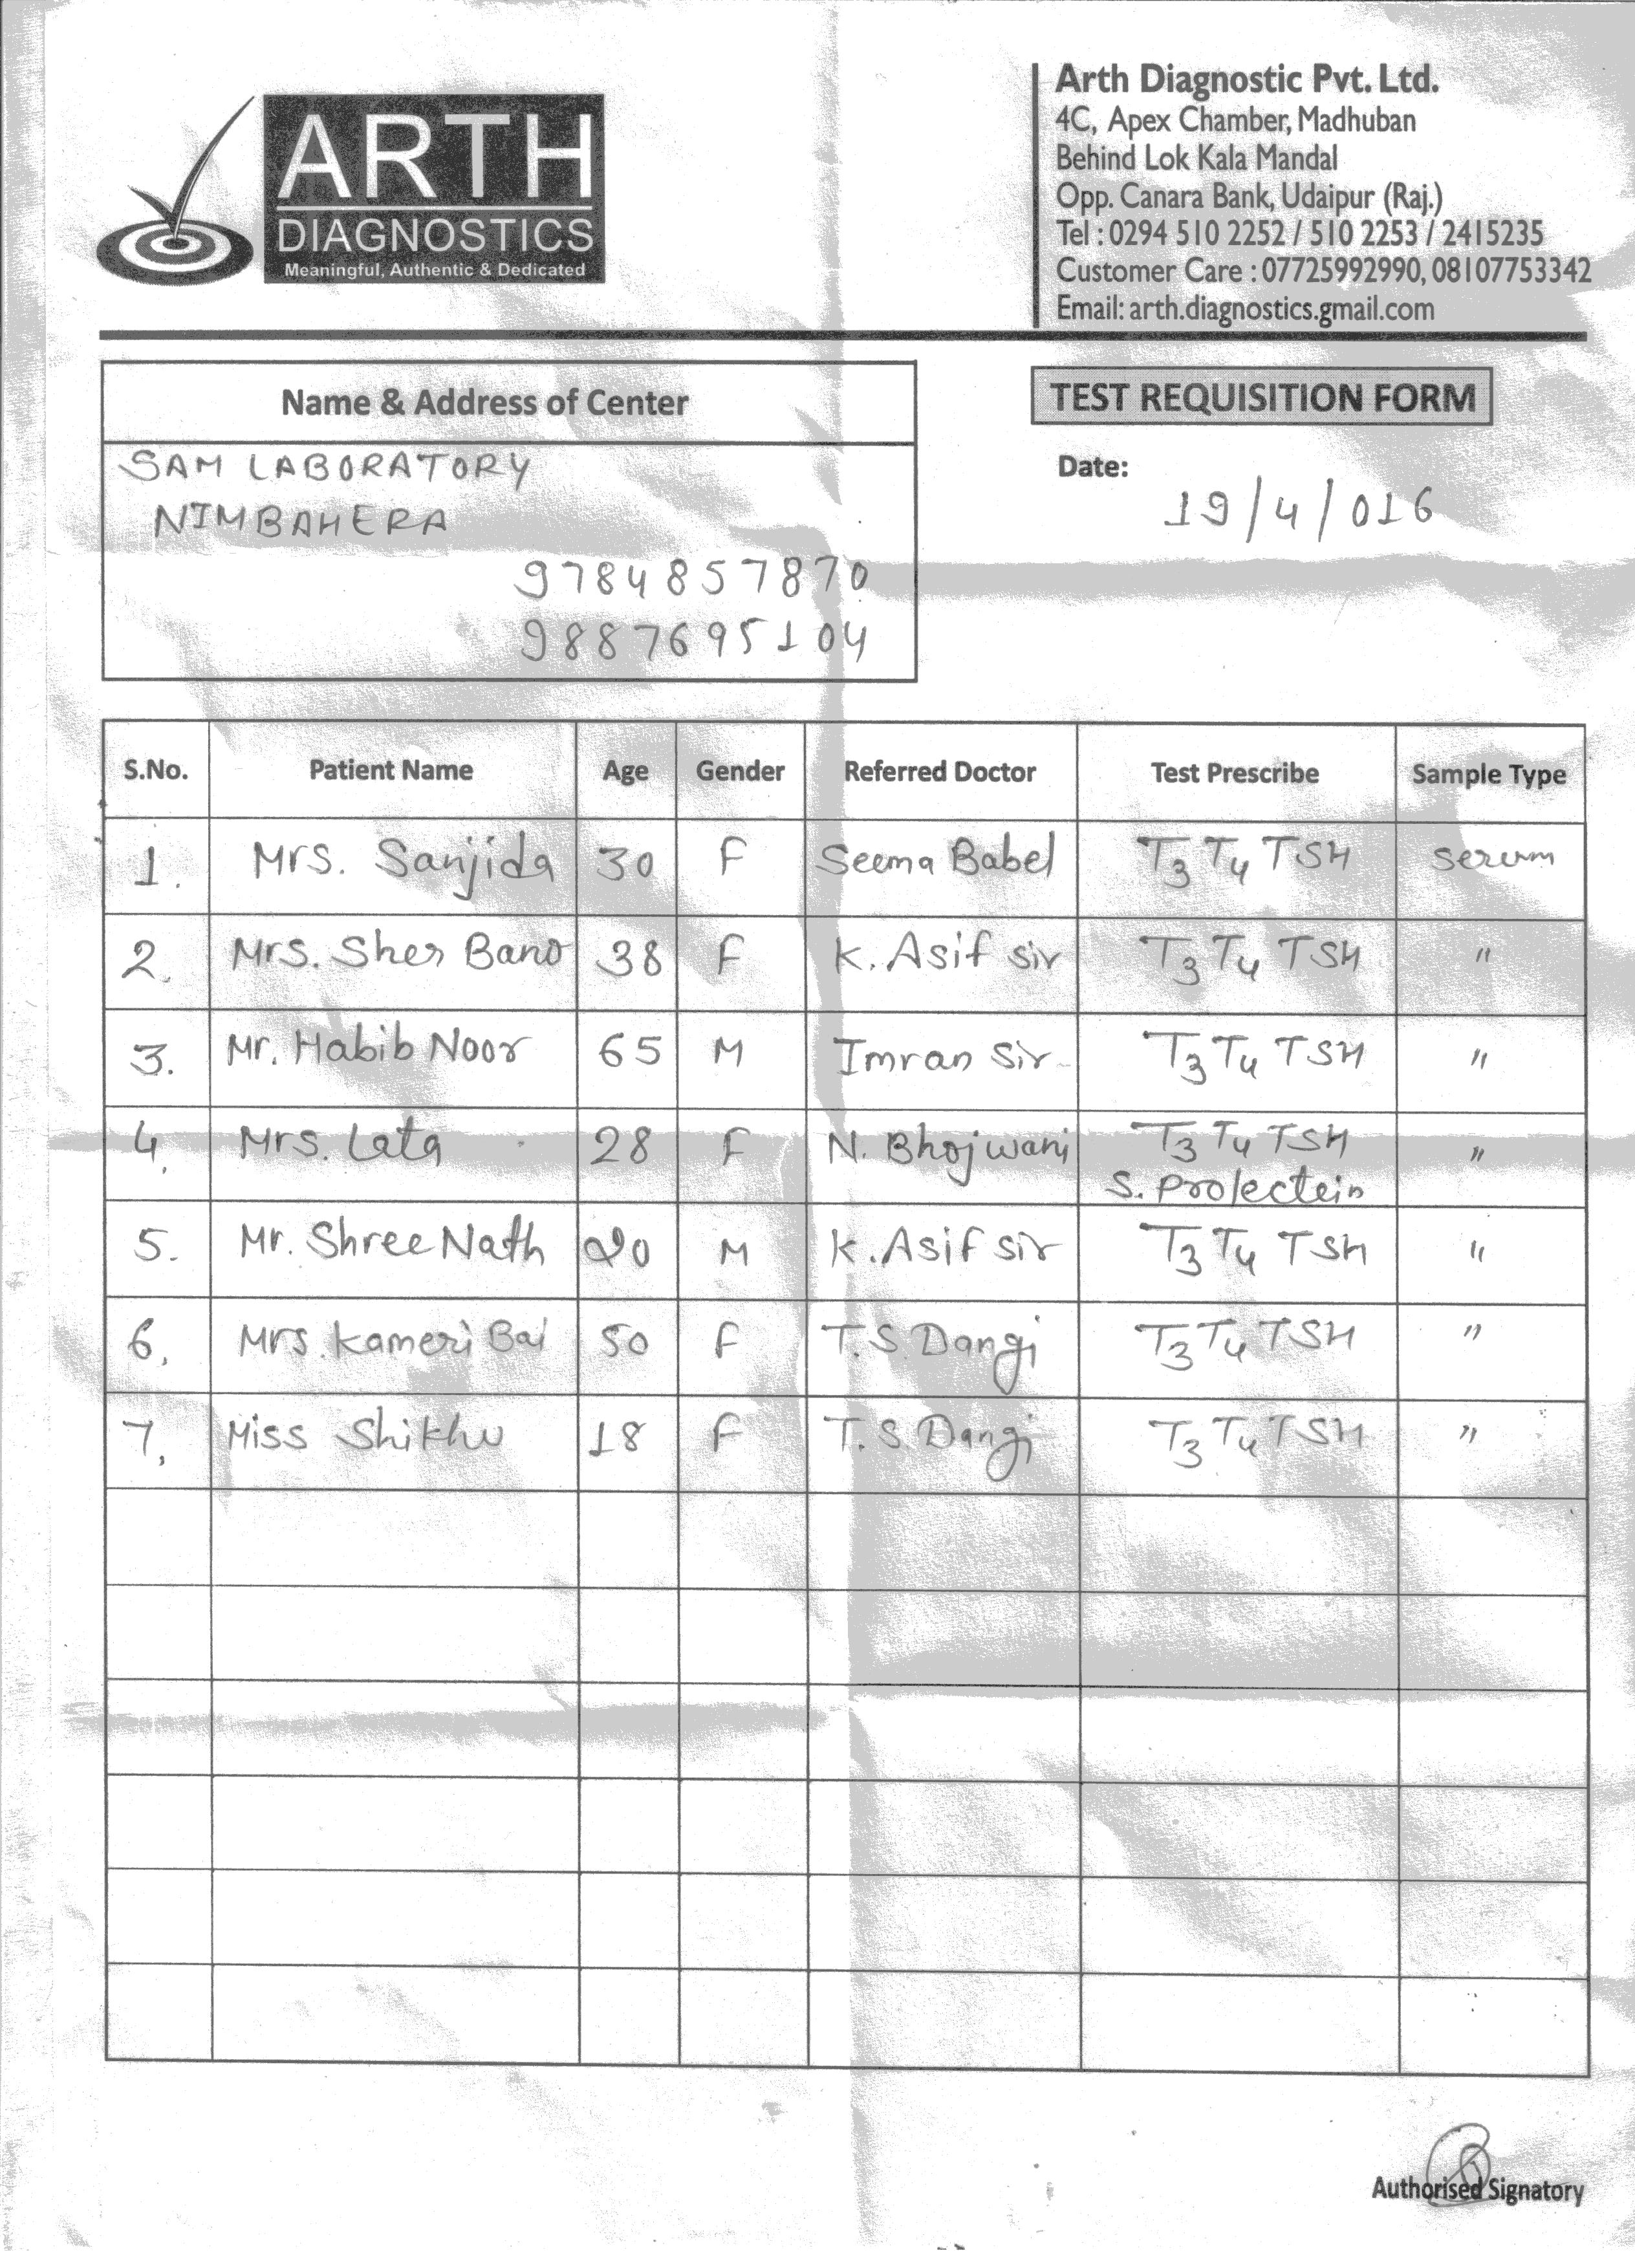 ARTH
DIAGNOSTICS
Meaningful, Authentic & Dedicated
Arth Diagnostic Pvt. Ltd.
4C, Apex Chamber, Madhuban
Behind Lok Kala Mandal
Opp. Canara Bank, Udaipur (Raj.)
Tel : 0294 510 2252 / 510 2253 / 2415235
Customer Care : 07725992990, 08107753342
Email: arth.diagnostics.gmail.com
Name & Address of Center
SAM LABORATORY
NIMBAHERA
9784857870
9887695104
TEST REQUISITION FORM
Date:
19/4/016
S.No. Patient Name Age Gender Referred Doctor Test Prescribe Sample Type
1. Mrs. Sanjida 30 F Seema Babel T3 T4 TSH serum
2. Mrs. Sher Bano 38 F K. Asif sir T3 T4 TSH "
3. Mr. Habib Noor 65 M Imran Sir T3 T4 TSH "
4. Mrs. Lata 28 F N. Bhojwani T3 T4 TSH "
S. Prolectein
5. Mr. Shree Nath 20 M K. Asif sir T3 T4 TSH "
6. Mrs. Kameri Bai 50 F T.S. Dangi T3 T4 TSH "
7. Miss Shikhu 18 F T.S Dangi T3 T4 TSH "
Authorised Signatory